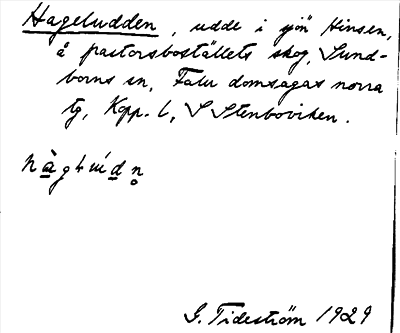 Hageludden, udde i sjön Hinsen,
å pastorsboställets skog, Sund-
borns sn, Falu domsagas norra
tg, Kopp. l, S Stenboviken.
G. Tideström 1929